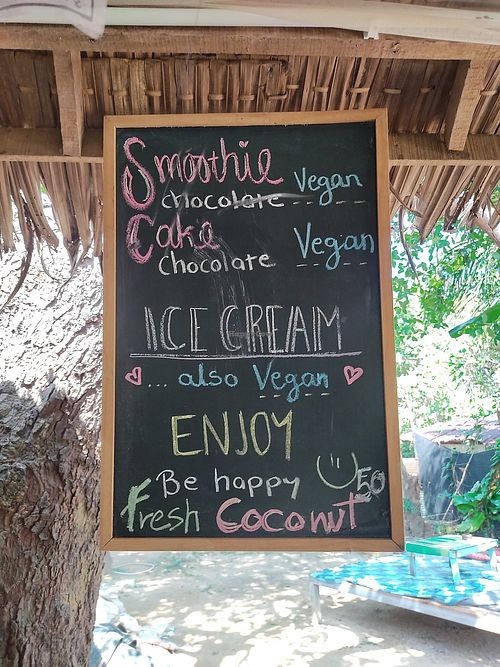 Smoothie
chocolate Vegan
Cake
Chocolate Vegan
ICE CREAM
... also Vegan
ENJOY
Be happy
Fresh Coconut 50